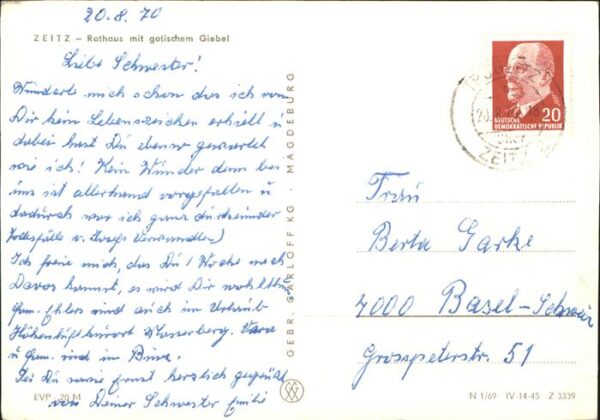 20.8.70
ZEITZ – Rathaus mit gotischem Giebel
Liebe Schwester!
Wunderte mich schon das ich von
Dir kein Lebenszeichen erhielt u
dabei hast Du ebenso gewartet
wie ich! Kein Wunder denn bei
uns ist allerhand vorgefallen u
dadurch war ich ganz durcheinder
Todesfälle v. Josefs Verwandten)
Ich freue mich, das Du 1 Woche nach
Davos kannst, es wird Dir wohltun
Fam. Ehlers sind auch im Urlaub
Höhenluftkurort Masserberg. Vera
u Fam. sind in
Sei Du sowie Ernst herzlich gegrüßt
von Deiner Schwester Emili
GEBR. GARLOFF KG · MAGDEBURG
EVP 20 M
DEUTSCHE
DEMOKRATISCHE REPUBLIK
20
ZEITZ
Frau
Berta Garke
4000 Basel-Schweiz
Grosspeterstr. 51
N 1/69 IV-14-45 Z 3339